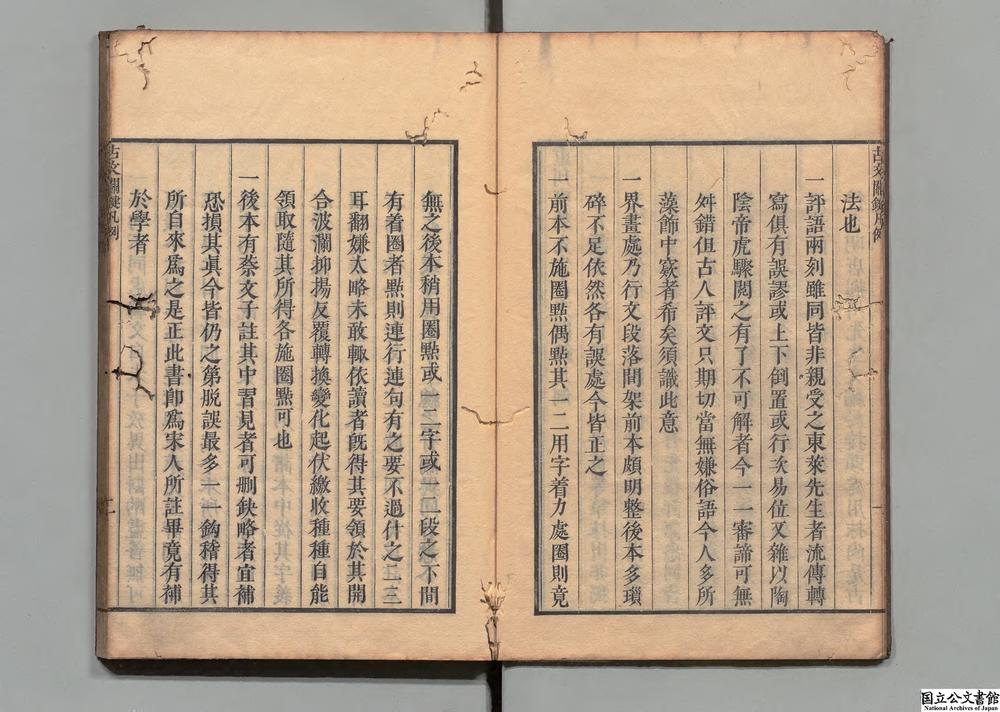 法也
一評語兩刻雖同皆非親受之東萊先生者流傳轉
寫俱有誤謬或上下倒置或行次易位又雜以陶
陰帝虎驟閱之有了不可解者今一一審諦可無
舛錯但古人評文只期切當無嫌俗語今人多所
藻飾中窽者希矣須識此意
一界畫處乃行文段落間架前本頗明整後本多瑣
碎不足依然各有誤處今皆正之
一前本不施圈點偶點其一二用字着力處圈則竟
古文關鍵凡例
無之後本稍用圈點或一二字或一二段之不間
有着圈者點則連行連句有之要不過什之二三
耳翻嫌太略未敢輒依讀者旣得其要領於其開
合波瀾抑揚反覆轉換變化起伏繳收種種自能
領取隨其所得各施圈點可也
一後本有蔡文子註其中習見者可刪缺略者宜補
恐損其眞今皆仍之第脫誤最多一一鈎稽得其
所自來爲之是正此書卽爲宋人所註畢竟有補
於學者
古文關鍵凡例
二
国立公文書館
National Archives of Japan